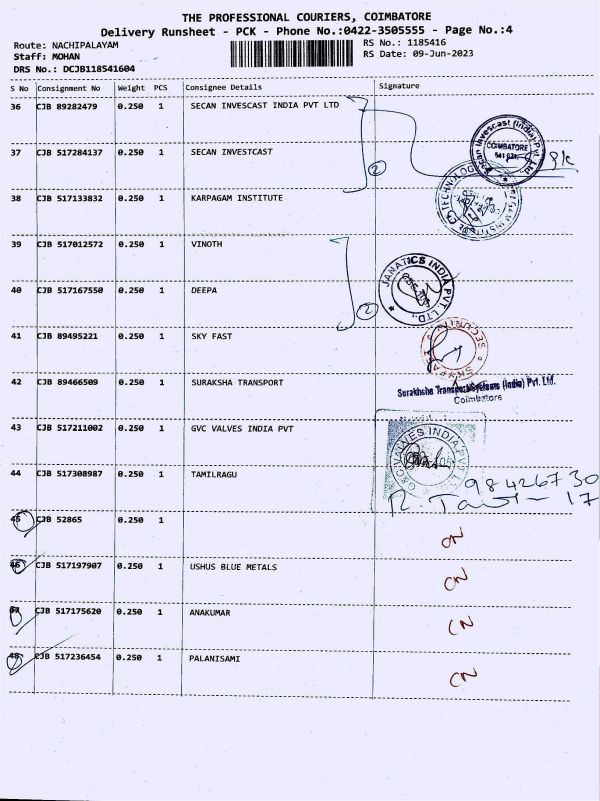 THE PROFESSIONAL COURIERS, COIMBATORE
Delivery Runsheet - PCK - Phone No.:0422-3505555 - Page No.:4
Route: NACHIPALAYAM
RS No.: 1185416
Staff: MOHAN
RS Date: 09-Jun-2023
DRS No.: DCJB118541604
S No Consignment No Weight PCS Consignee Details Signature
36 CJB 89282479 0.250 1 SECAN INVESCAST INDIA PVT LTD
Secan Invescast (India) Pvt. Ltd.
COIMBATORE
37 CJB 517284137 0.250 1 SECAN INVESTCAST
2
38 CJB 517133832 0.250 1 KARPAGAM INSTITUTE
39 CJB 517012572 0.250 1 VINOTH
JANATICS INDIA PVT. LTD.,
40 CJB 517167550 0.250 1 DEEPA
2
41 CJB 89495221 0.250 1 SKY FAST
SECURITY
42 CJB 89466509 0.250 1 SURAKSHA TRANSPORT
Surakhshe Transport Systems (India) Pvt. Ltd.
Coimbatore
43 CJB 517211002 0.250 1 GVC VALVES INDIA PVT
VALVES INDIA
44 CJB 517308987 0.250 1 TAMILRAGU
98426730
17
45 CJB 52865 0.250 1
CN
46 CJB 517197907 0.250 1 USHUS BLUE METALS
CN
47 CJB 517175620 0.250 1 ANAKUMAR
CN
48 CJB 517236454 0.250 1 PALANISAMI
CN